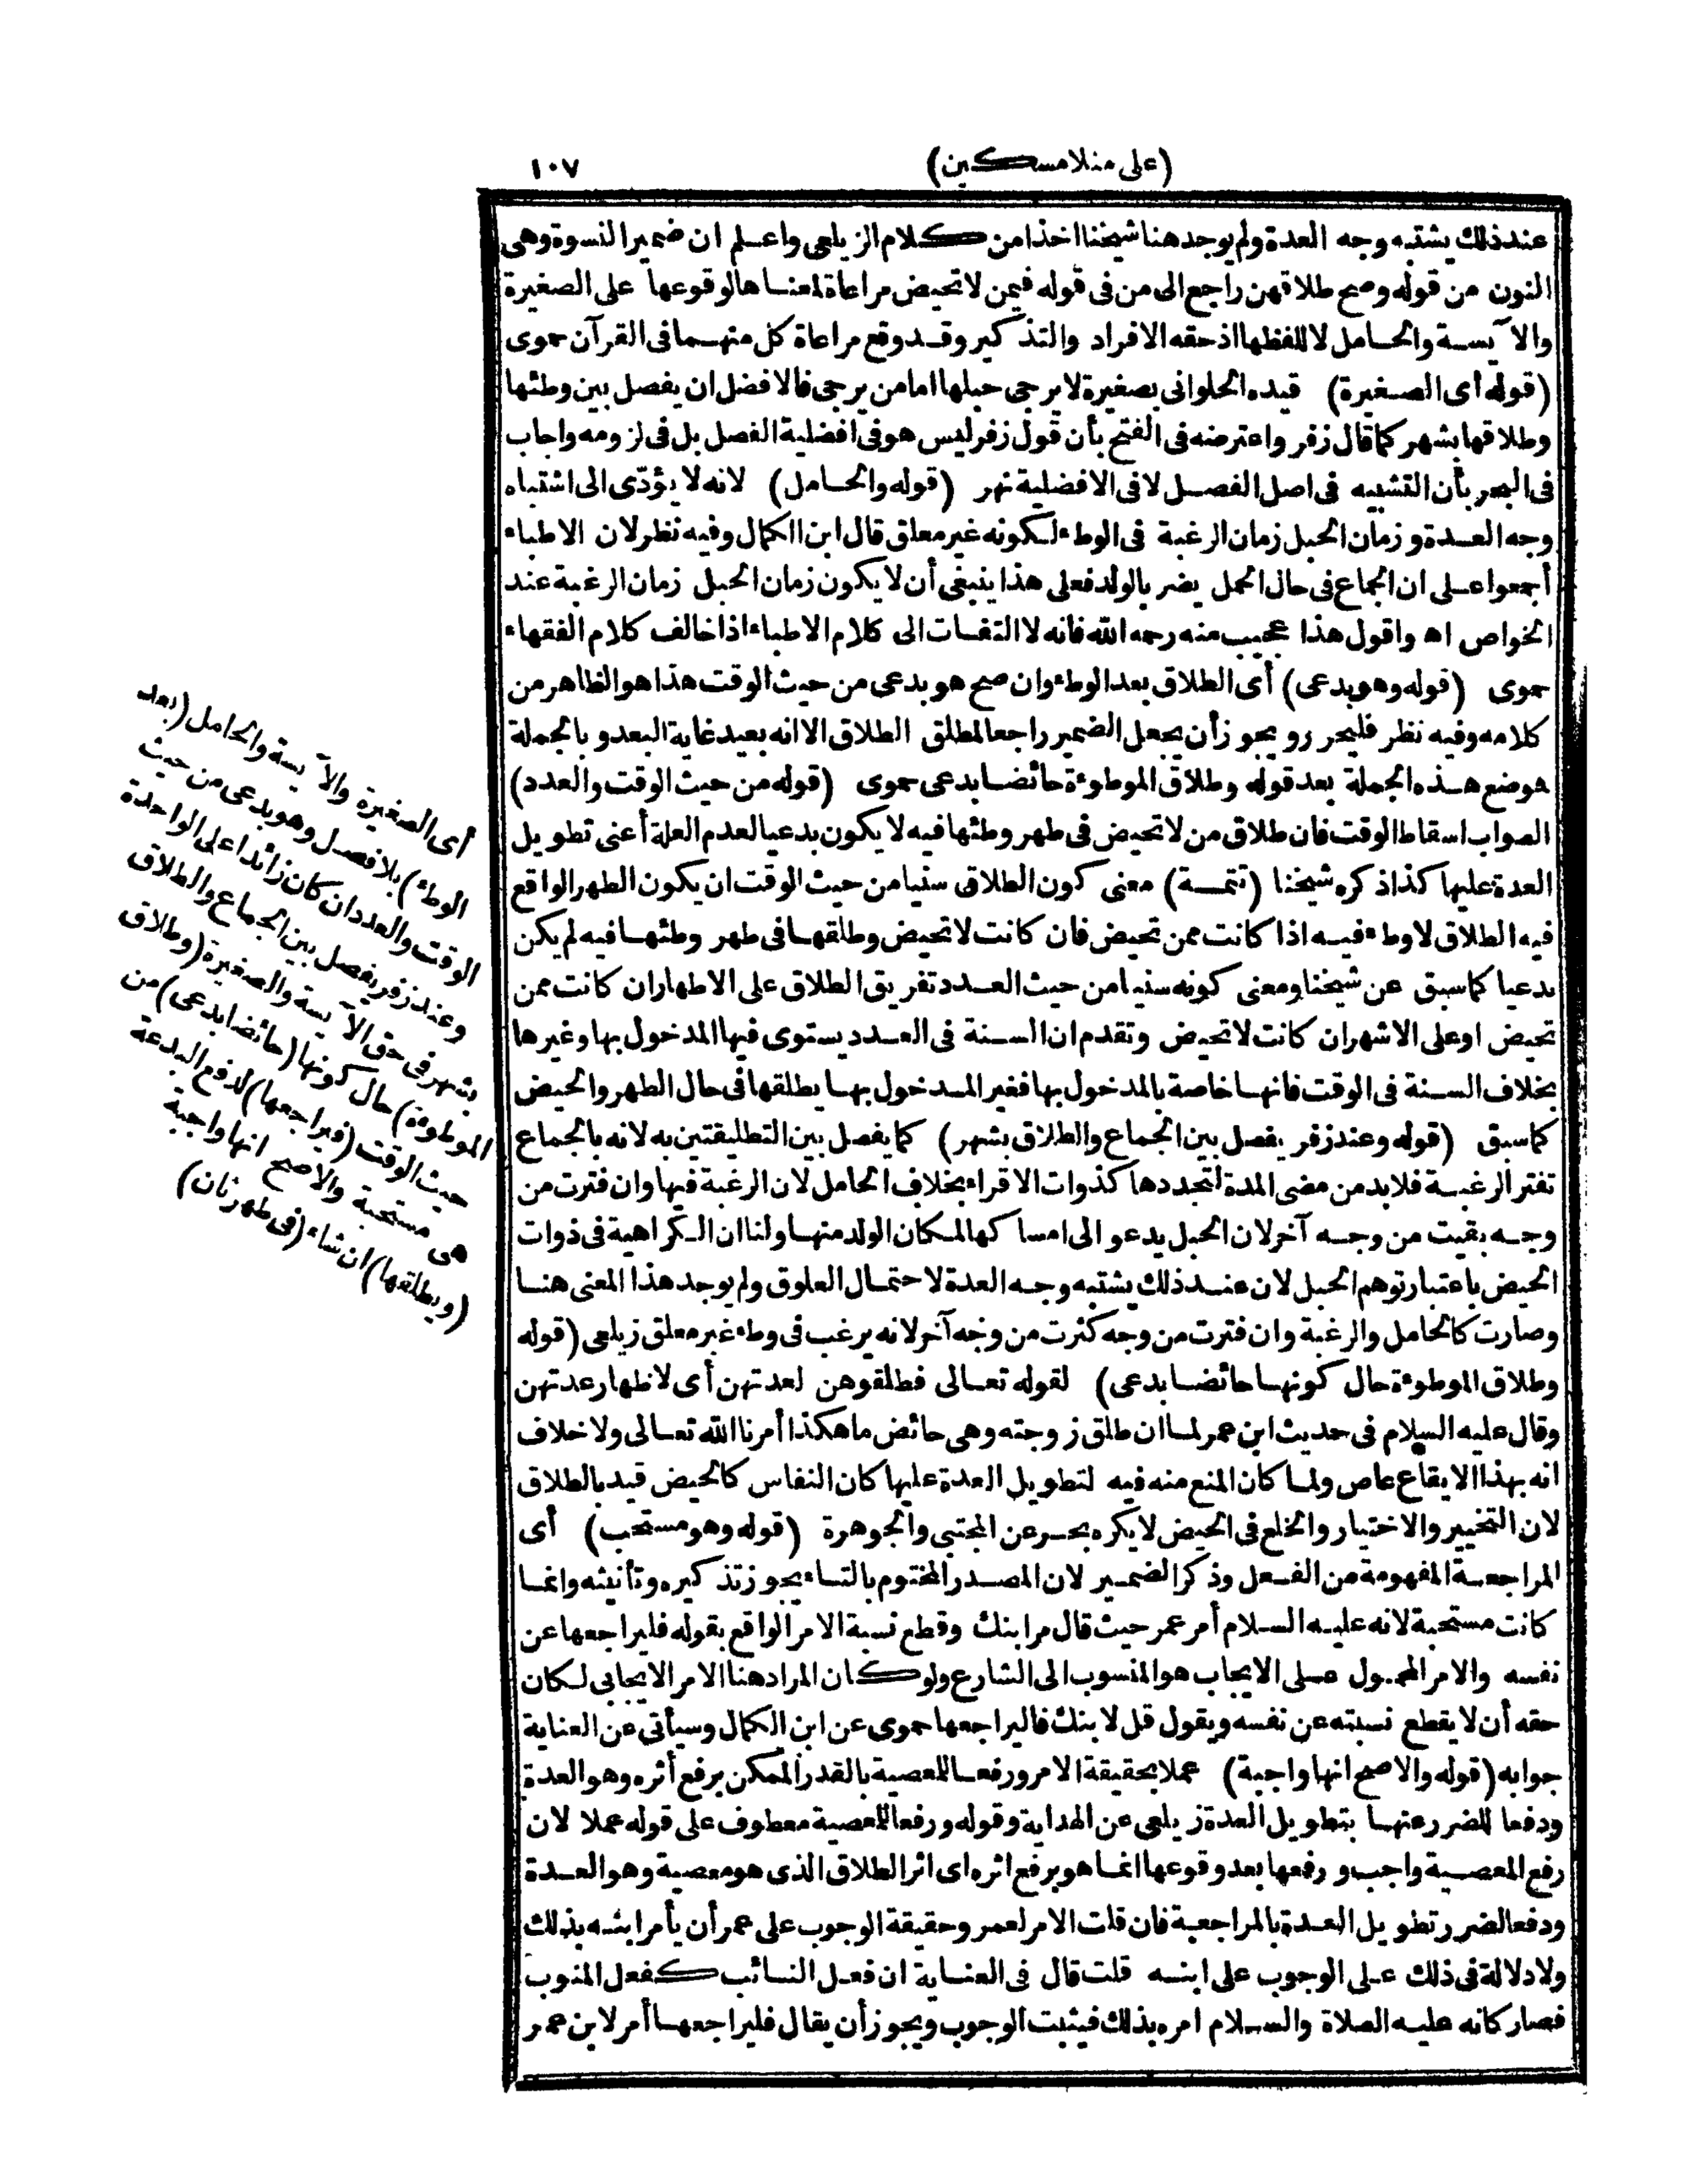 (على منلا مسكين)
١٠٧
عند ذلك يشتبه وجه العدة ولم يوجد هنا شيخنا اخذا من كلام الزيلعى واعلم ان ضمير النسوة وهى
النون من قوله وصح طلاقهن راجع الى من فى قوله فيمن لا تحيض مراعاة لمعناها لوقوعها على الصغيرة
والآيسة والحامل لا للفظها اذ حقه الافراد والتذكير وقد وقع مراعاة كل منهما فى القرآن حموى
(قوله أى الصغيرة) قيده الحلوانى بصغيرة لا يرجى حبلها اما من يرجى فالافضل ان يفصل بين وطئها
وطلاقها بشهر كما قال زفر واعترضه فى الفتح بأن قول زفر ليس هو فى افضلية الفصل بل فى لزومه واجاب
فى البحر بأن التشبيه فى اصل الفصل لا فى الافضلية نهر (قوله والحامل) لانه لا يؤدّى الى اشتباه
وجه العدة وزمان الحبل زمان الرغبة فى الوطء لكونه غير معلق قال ابن الكمال وفيه نظر لان الاطباء
أجمعوا على ان الجماع فى حال الحمل يضر بالولد فعلى هذا ينبغى أن لا يكون زمان الحبل زمان الرغبة عند
الخواص اه واقول هذا عجيب منه رحمه الله فانه لا التفات الى كلام الاطباء اذا خالف كلام الفقهاء
حموى (قوله وهو بدعى) أى الطلاق بعد الوطء وان صح هو بدعى من حيث الوقت هذا هو الظاهر من
كلامه وفيه نظر فليحرر ويجوز أن يجعل الضمير راجعا لمطلق الطلاق الا انه بعيد غاية البعد وبالجملة
موضع هذه الجملة بعد قوله وطلاق الموطوءة حائضا بدعى حموى (قوله من حيث الوقت والعدد)
الصواب اسقاط الوقت فان طلاق من لا تحيض فى طهر وطئها فيه لا يكون بدعيا لعدم العلة أعنى تطويل
العدة عليها كذا ذكره شيخنا (تتمة) معنى كون الطلاق سنيا من حيث الوقت ان يكون الطهر الواقع
فيه الطلاق لا وطء فيه اذا كانت ممن تحيض فان كانت لا تحيض وطلقها فى طهر وطئها فيه لم يكن
بدعيا كما سبق عن شيخنا ومعنى كونه سنيا من حيث العدد تفريق الطلاق على الاطهار ان كانت ممن
تحيض او على الاشهر ان كانت لا تحيض وتقدم ان السنة فى العدد يستوى فيها المدخول بها وغيرها
بخلاف السنة فى الوقت فانها خاصة بالمدخول بها فغير المدخول بها يطلقها فى حال الطهر والحيض
كما سبق (قوله وعند زفر يفصل بين الجماع والطلاق بشهر) كما يفصل بين التطليقتين به لانه بالجماع
تفتر الرغبة فلا بد من مضى المدة لتجددها كذوات الاقراء بخلاف الحامل لان الرغبة فيها وان فترت من
وجه بقيت من وجه آخر لان الحبل يدعو الى امساكها لمكان الولد منها ولنا ان الكراهية فى ذوات
الحيض باعتبار توهم الحبل لان عند ذلك يشتبه وجه العدة لاحتمال العلوق ولم يوجد هذا المعنى هنا
وصارت كالحامل والرغبة وان فترت من وجه كثرت من وجه آخر لانه يرغب فى وطء غير معلق زيلعى (قوله
وطلاق الموطوءة حال كونها حائضا بدعى) لقوله تعالى فطلقوهن لعدتهن أى لاظهار عدتهن
وقال عليه السلام فى حديث ابن عمر لما ان طلق زوجته وهى حائض ما هكذا أمرنا الله تعالى ولا خلاف
انه بهذا الايقاع عاص ولما كان المنع منه فيه لتطويل العدة عليها كان النفاس كالحيض قيد بالطلاق
لان التخيير والاختيار والخلع فى الحيض لا يكره بحر عن المجتبى والجوهرة (قوله وهو مستحب) أى
المراجعة المفهومة من الفعل وذكر الضمير لان المصدر المختوم بالتاء يجوز تذكيره وتأنيثه وانما
كانت مستحبة لانه عليه السلام أمر عمر حيث قال مر ابنك وقطع نسبة الامر الواقع بقوله فليراجعها عن
نفسه والامر المحمول على الايجاب هو المنسوب الى الشارع ولو كان المراد هنا الامر الايجابى لكان
حقه أن لا يقطع نسبته عن نفسه ويقول قل لابنك فاليراجعها حموى عن ابن الكمال وسيأتى عن العناية
جوابه (قوله والاصح انها واجبة) عملا بحقيقة الامر ورفعا للمعصية بالقدر الممكن برفع أثره وهو العدة
ودفعا للضرر عنها بتطويل العدة زيلعى عن الهداية وقوله ورفعا للمعصية معطوف على قوله عملا لان
رفع المعصية واجب ورفعها بعد وقوعها انما هو برفع اثره اى اثر الطلاق الذى هو معصية وهو العدة
ودفعا لضرر تطويل العدة بالمراجعة فان قلت الامر لعمر وحقيقة الوجوب على عمر أن يأمر ابنه بذلك
ولا دلالة فى ذلك على الوجوب على ابنه قلت قال فى العناية ان فعل النائب كفعل المنوب
فصار كانه عليه الصلاة والسلام امره بذلك فيثبت الوجوب ويجوز أن يقال فليراجعها أمر لابن عمر
أى الصغيرة والآيسة والحامل (بعد
الوطء) بلا فصل وهو بدعى من حيث
الوقت والعدد ان كان زائدا على الواحدة
وعند زفر يفصل بين الجماع والطلاق
بشهر فى حق الآيسة والصغيرة (وطلاق
الموطوءة) حال كونها (حائضا بدعى) من
حيث الوقت (فيراجعها) لدفع البدعة
هى مستحبة والاصح انها واجبة
(ويطلقها) ان شاء (فى طهر ثان)